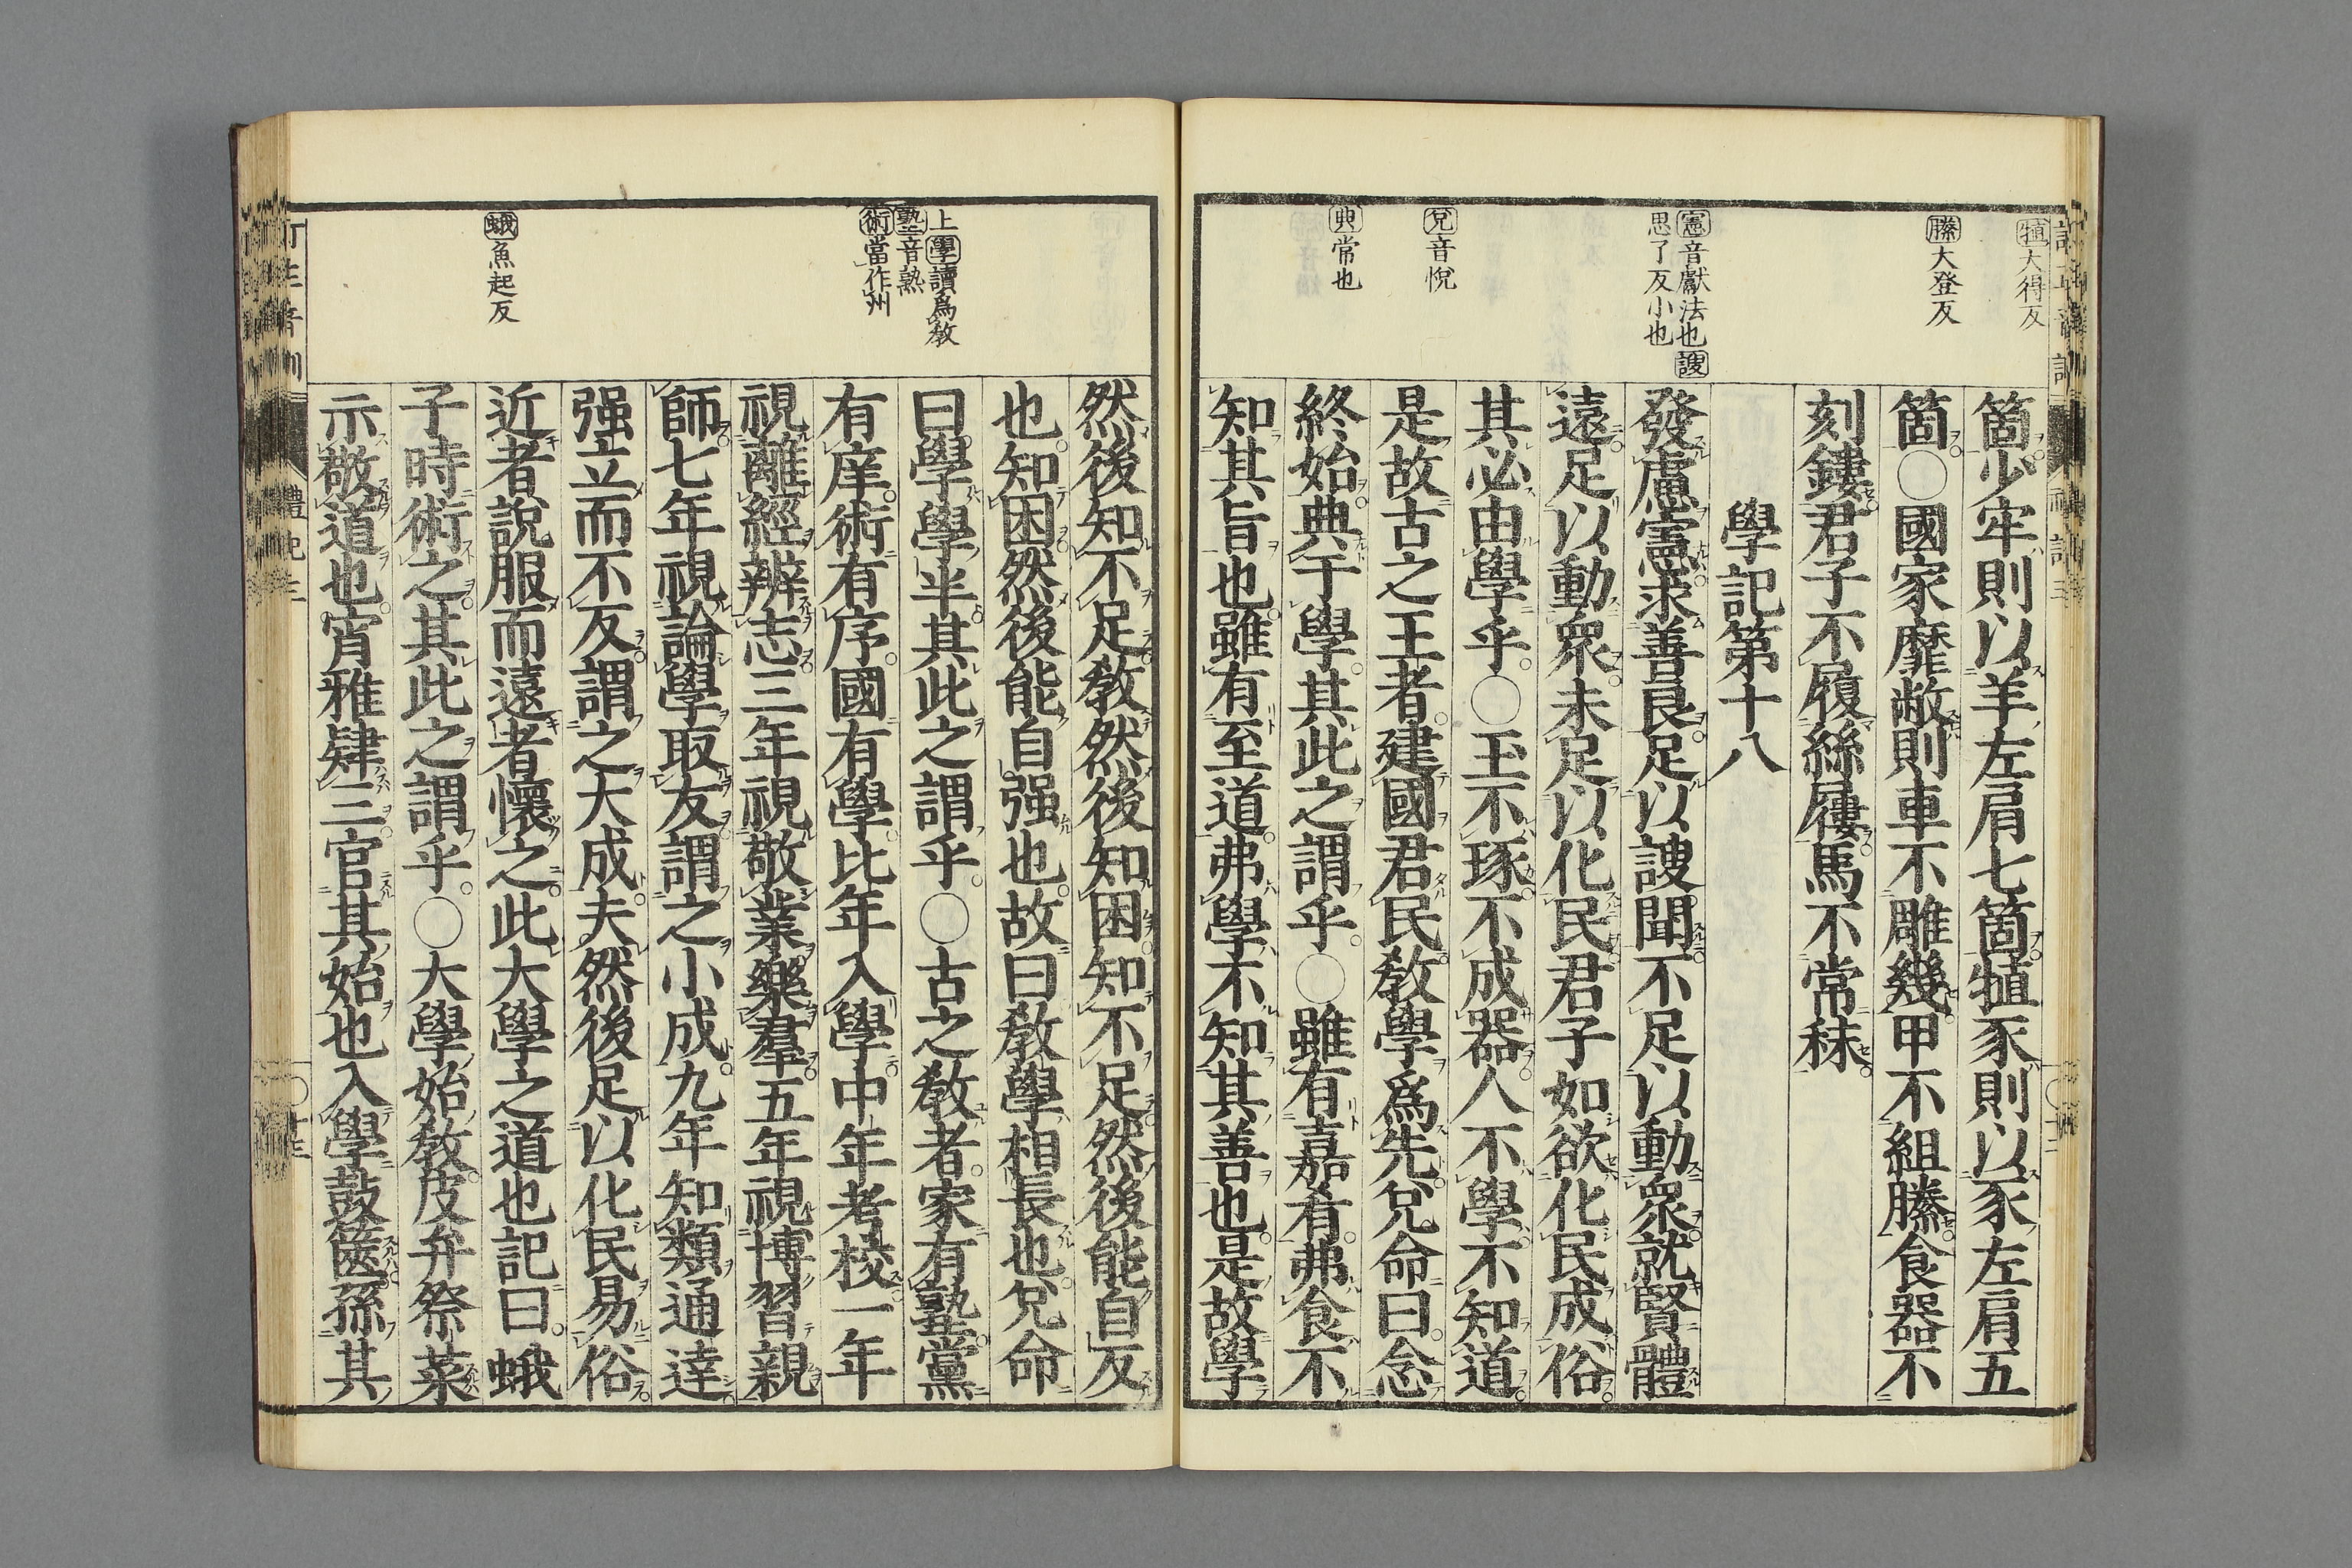 犆大得反
縢大登反
憲音獻法也謏
思了反小也
兌音悅
典常也
箇少牢則以羊左肩七箇犆豕則以豕左肩五
箇○國家靡敝則車不雕幾甲不組縢食器不
刻鏤君子不履絲屨馬不常秣
學記第十八
發慮憲求善良足以謏聞不足以動衆就賢體
遠足以動衆未足以化民君子如欲化民成俗
其必由學乎○玉不琢不成器人不學不知道
是故古之王者建國君民教學爲先兌命曰念
終始典于學其此之謂乎○雖有嘉肴弗食不
知其旨也雖有至道弗學不知其善也是故學
上學讀爲敎
塾音熟
術當作州
蛾魚起反
然後知不足教然後知困知不足然後能自反
也知困然後能自强也故曰教學相長也兌命
曰學學半其此之謂乎○古之教者家有塾黨
有庠術有序國有學比年入學中年考校一年
視離經辨志三年視敬業樂羣五年視博習親
師七年視論學取友謂之小成九年知類通達
强立而不反謂之大成夫然後足以化民易俗
近者說服而遠者懷之此大學之道也記曰蛾
子時術之其此之謂乎○大學始教皮弁祭菜
示敬道也宵雅肄三官其始也入學鼓篋孫其
禮記三